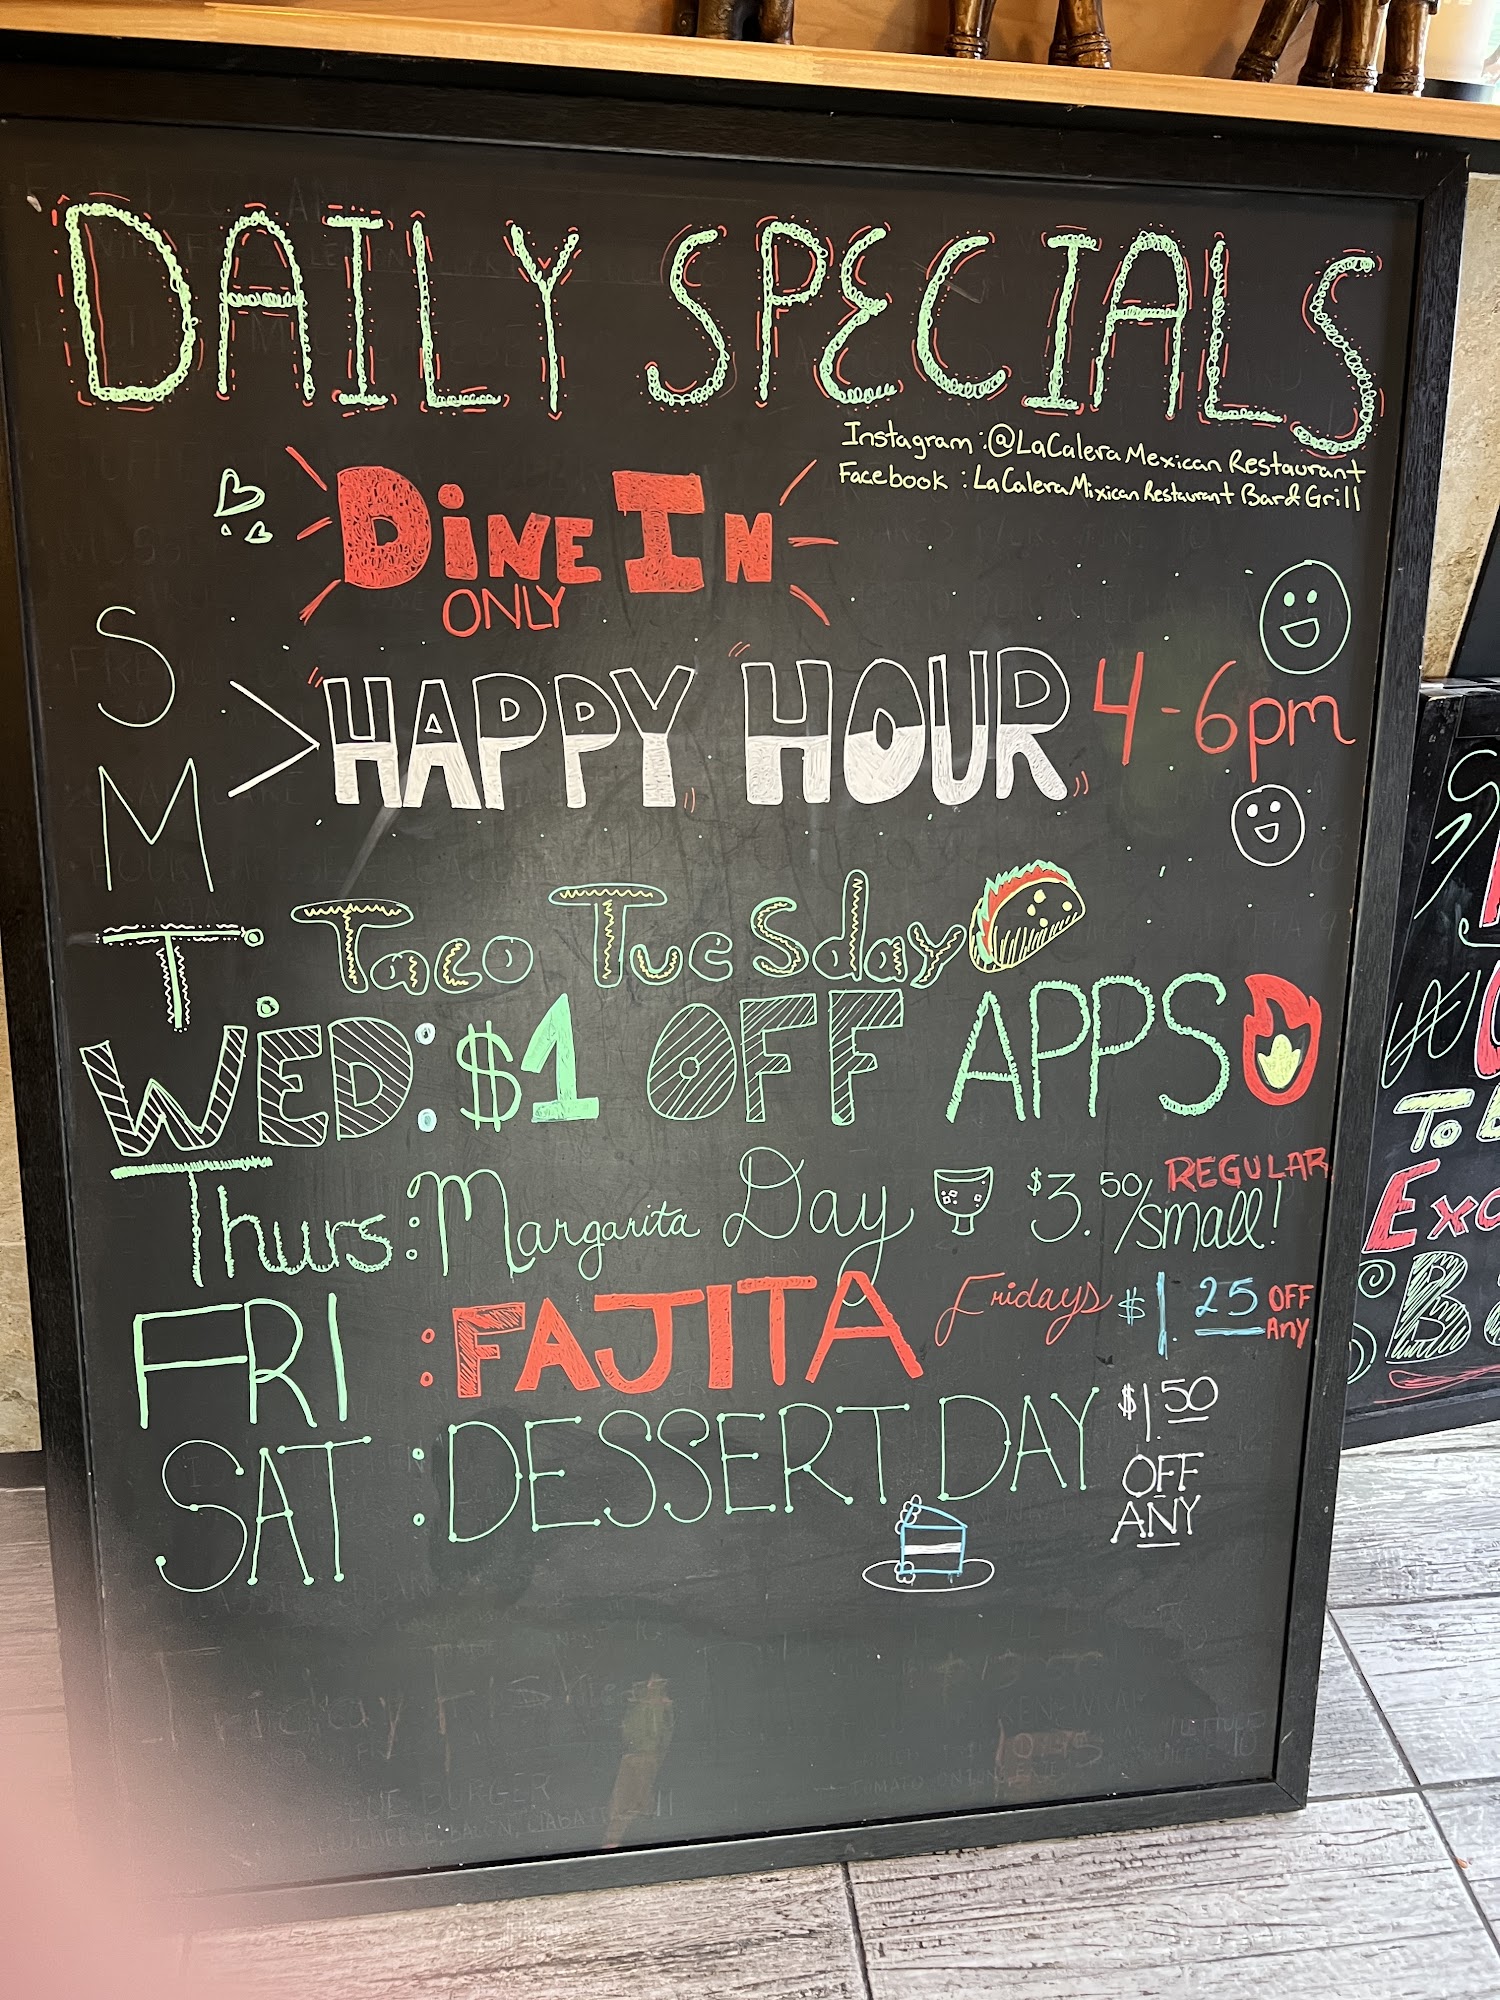 DAILY SPECIALS
Instagram: @LaCalera Mexican Restaurant
Facebook: LaCalera Mixican Restaurant Bar & Grill
DINE IN
ONLY
S
M
> "HAPPY HOUR" 4-6pm
T: Taco Tuesday
WED: $1 OFF APPS
Thurs: Margarita Day $3.50/ REGULAR small!
FRI: FAJITA Fridays $1.25 OFF Any
SAT: DESSERT DAY $1.50
OFF
ANY
To